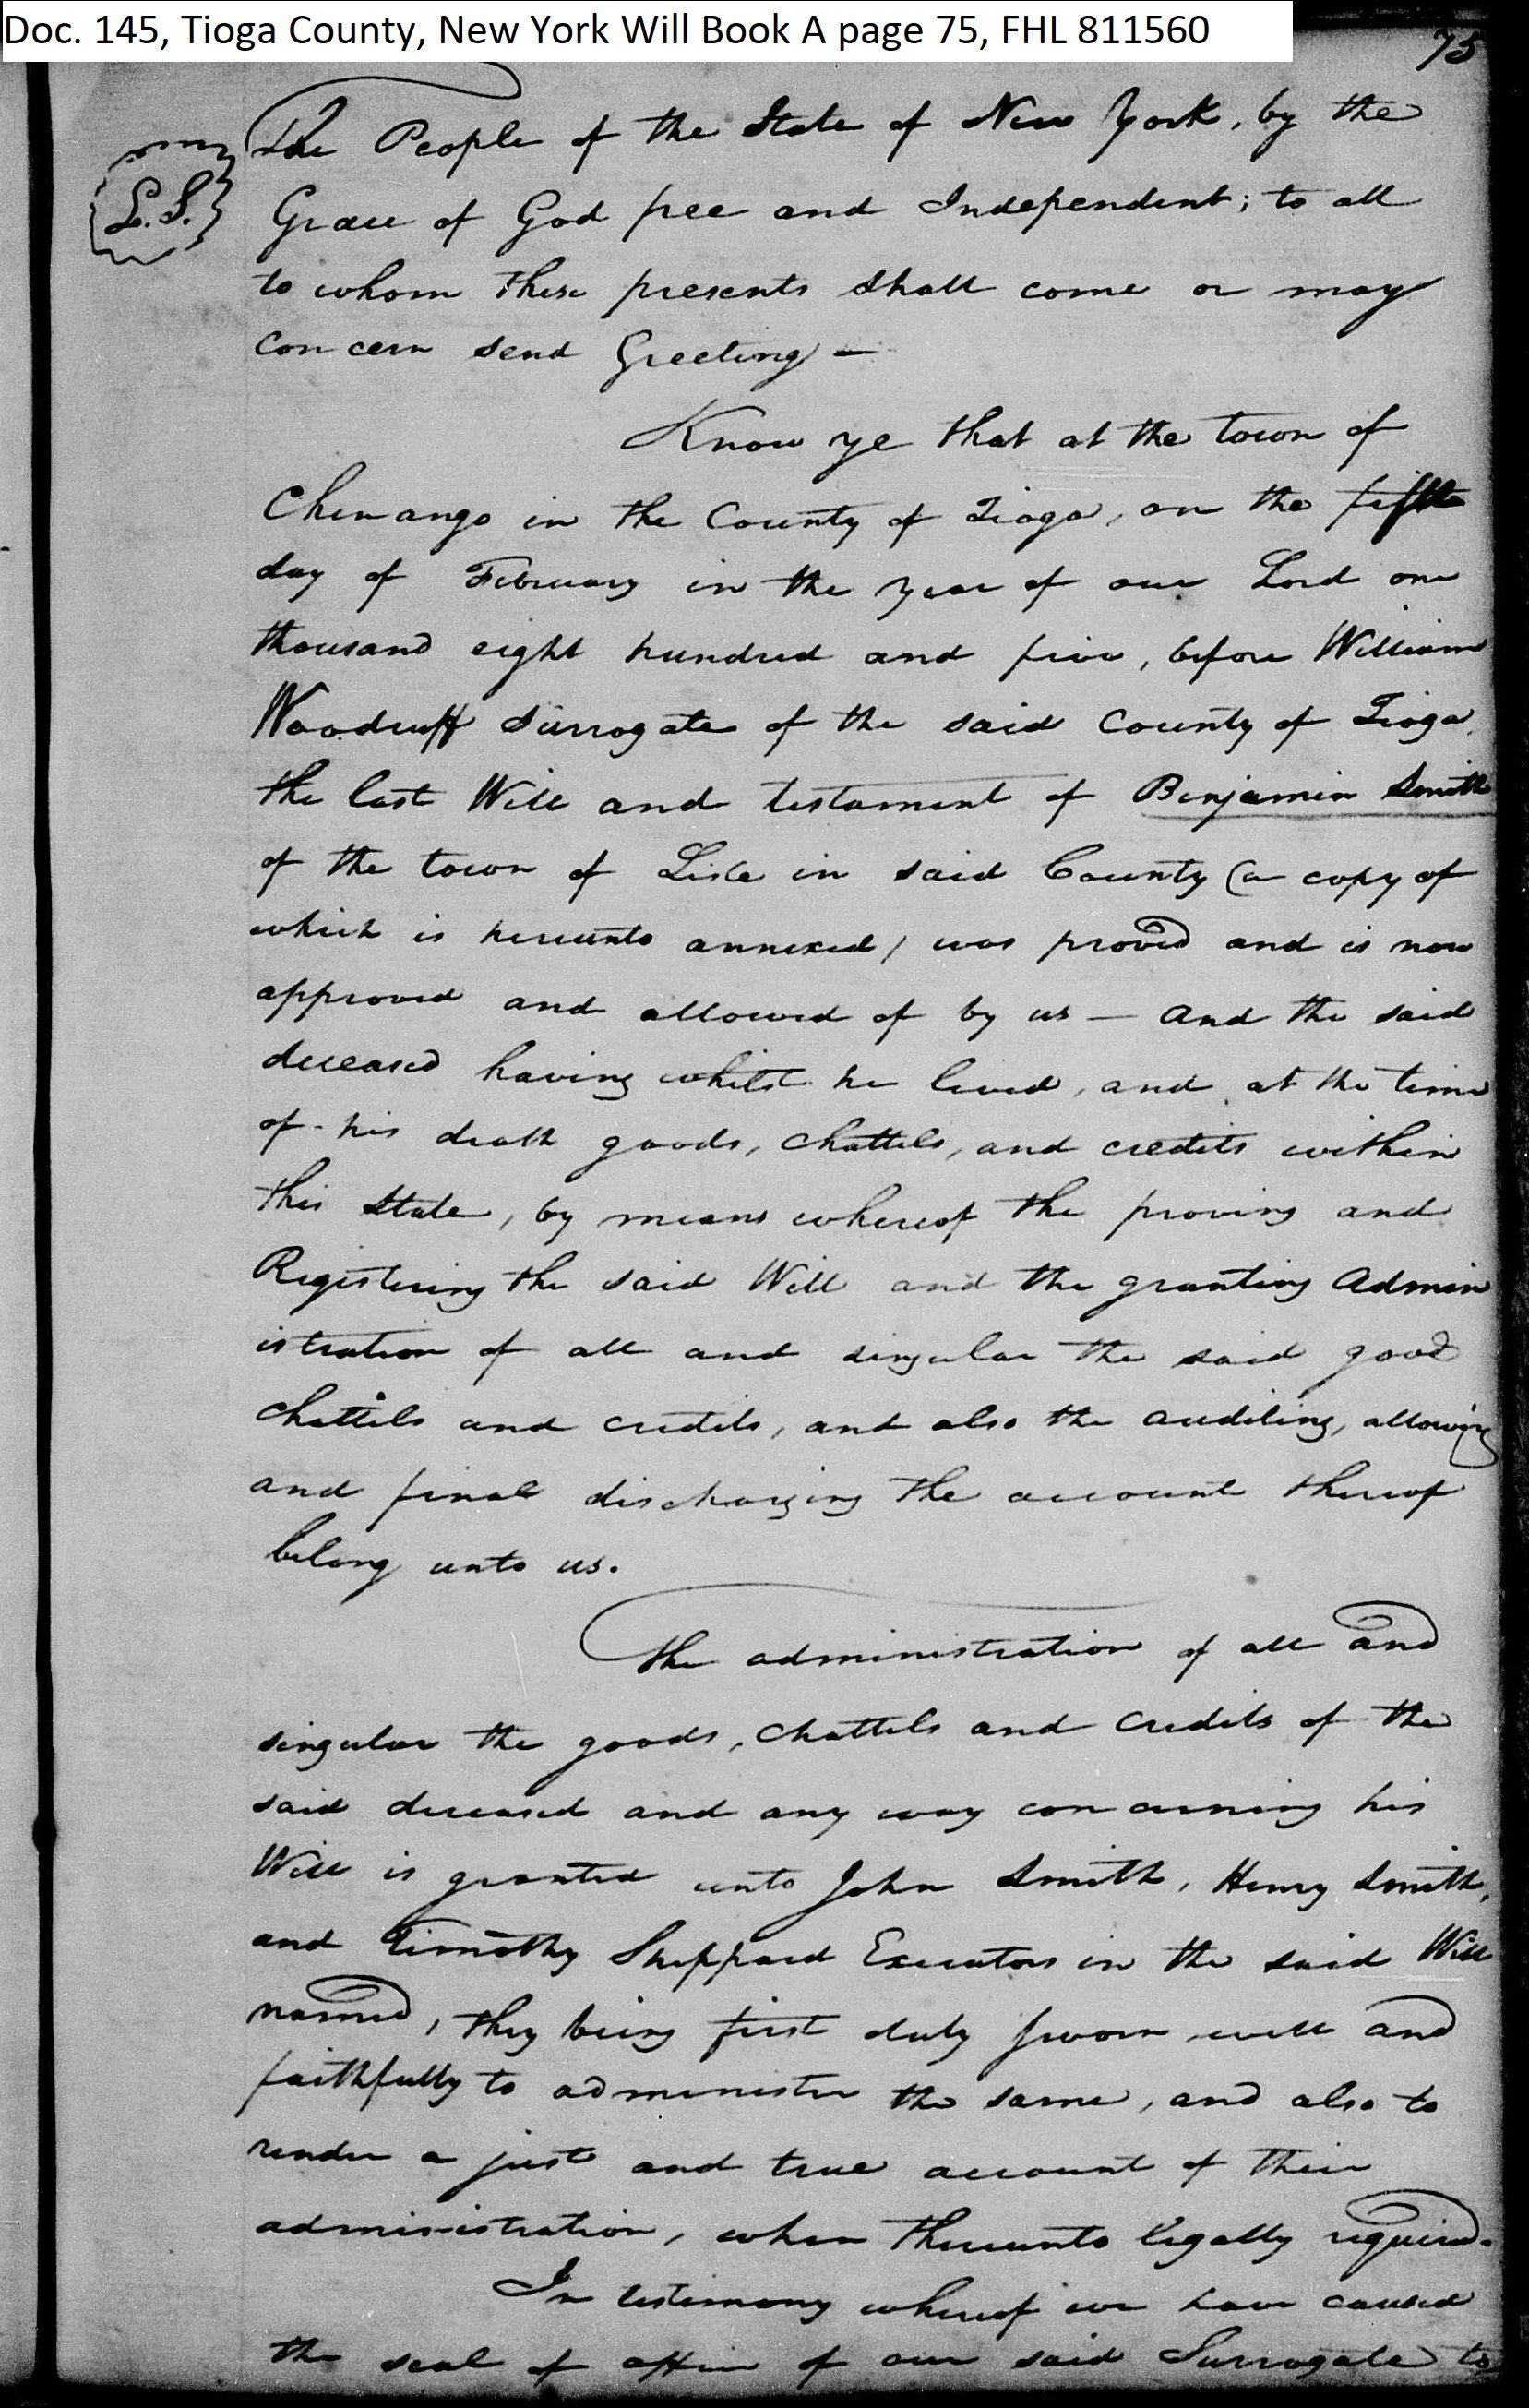 Doc. 145, Tioga County, New York Will Book A page 75, FHL 811560
75
The People of the State of New York, by the
L.S.
Grace of God free and Independent; to all
to whom these presents shall come or may
concern send Greeting —
Know ye that at the town of
Chenango in the County of Tioga, on the fifth
day of February in the year of our Lord one
thousand eight hundred and five, before William
Woodruff Surrogate of the said County of Tioga,
the last Will and testament of Benjamin Smith
of the town of Lisle in said County (a copy of
which is hereunto annexed) was proved and is now
approved and allowed of by us — and the said
deceased having whilst he lived, and at the time
of his death goods, chattels, and credits within
this State, by means whereof the proving and
Registering the said Will and the granting Admin
istration of all and singular the said good
chattels and credits, and also the auditing, allowing
and final discharging the account thereof
belong unto us.
The administration of all and
singular the goods, chattels and credits of the
said deceased and any way concerning his
Will is granted unto John Smith, Henry Smith,
and Timothy Sheppard Executors in the said Will
named, they being first duly sworn well and
faithfully to administer the same, and also to
render a just and true account of their
administration, when thereunto legally required.
In testimony whereof we have caused
the seal of office of our said Surrogate to